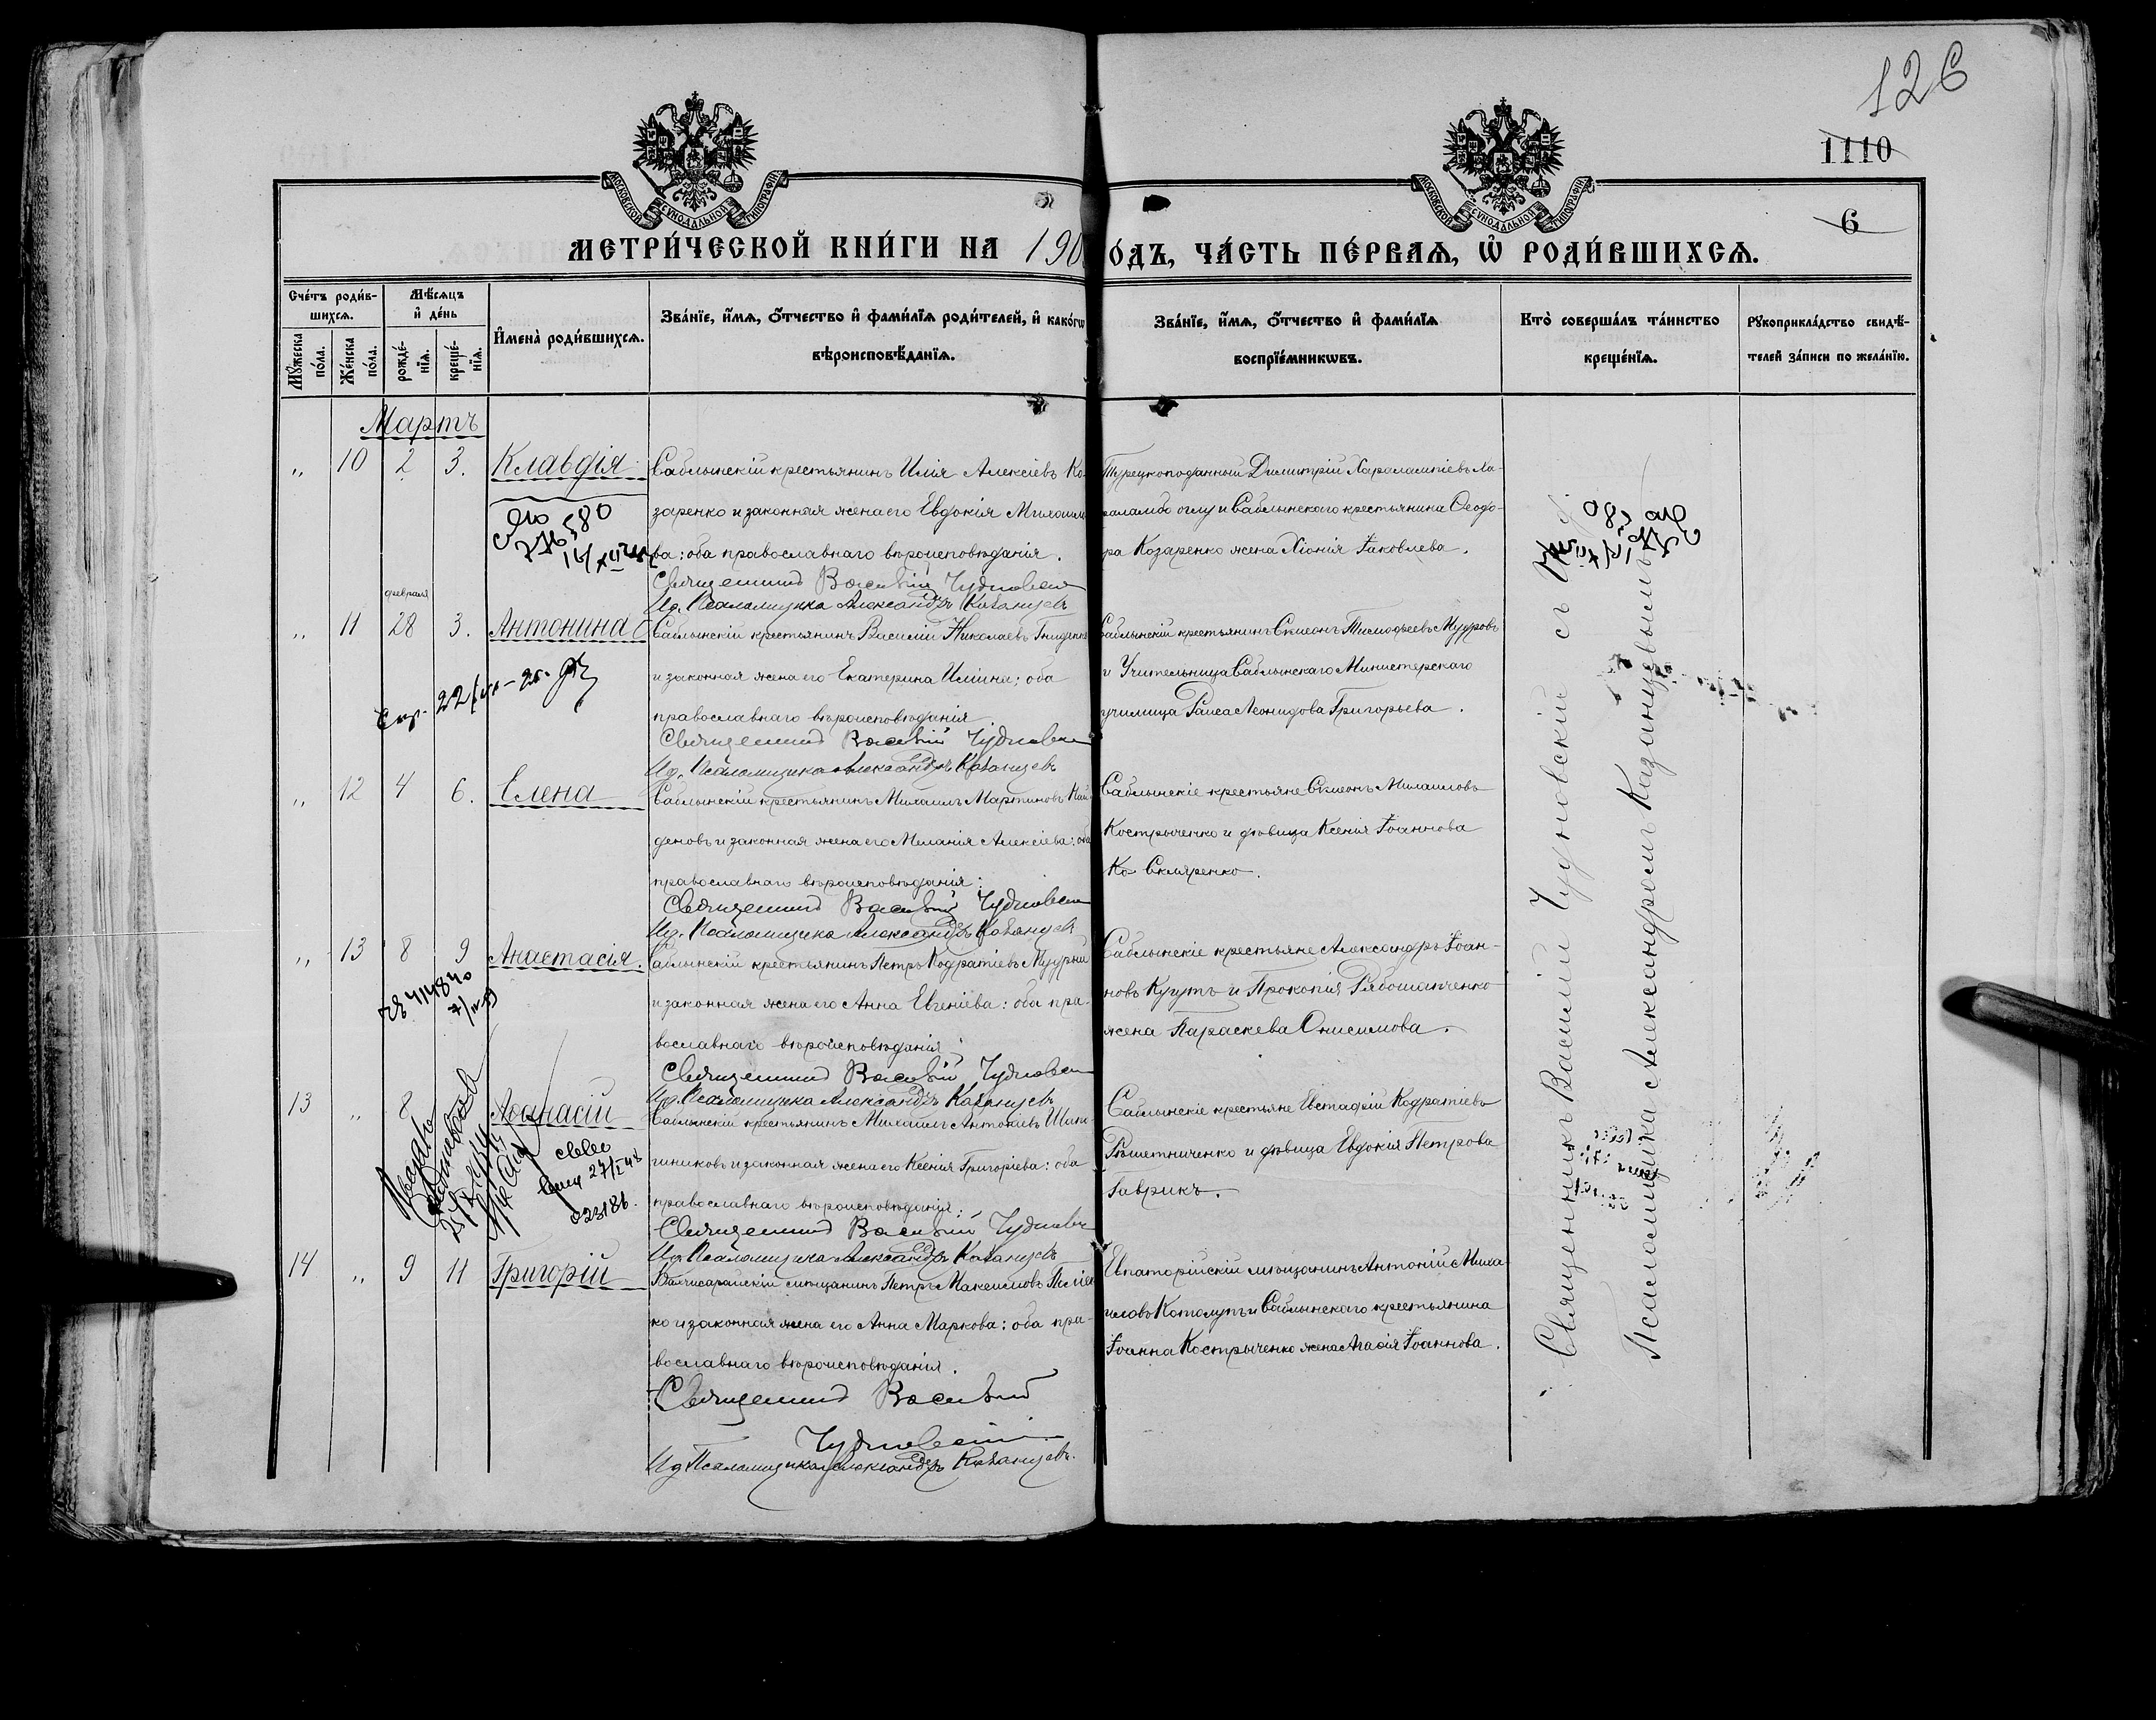 126
1110
6
МОСКОВСКОЙ СѴНОДАЛЬНОЙ ТИПОГРАФІИ
МОСКОВСКОЙ СѴНОДАЛЬНОЙ ТИПОГРАФІИ
МЕТРИ́ЧЕСКОЙ КНИ́ГИ НА 190
ÓДЪ, ЧА́СТЬ ПЕ́РВАѦ, Ѡ҆ РОДИ́ВШИХСѦ.
Сче́тъ роди́в-
шихсѧ.
Мꙋ́жеска по́ла.
Же́нска по́ла.
Мѣ́сѧцъ
и҆ де́нь
рожде́-нїѧ.
креще́-нїѧ.
И҆мена̀ роди́вшихсѧ.
Зва́нїе, и҆́мѧ, ѻ҆́тчество и҆ фами́лїѧ роди́телей, и҆ како́гѡ
вѣроисповѣ́данїѧ.
Зва́нїе, и҆́мѧ, ѻ҆́тчество и҆ фами́лїѧ
воспрїе́мникѡвъ.
Кто̀ соверша́лъ та́инство
креще́нїѧ.
Рꙋкоприкла́дство свидѣ́-
телей за́писи по жела́нїю.
Мартъ
„ 10 2 3. Клавдія
Саблынскій крестьянинъ Илія Алексіевъ Ко-
заренко и законная жена его Евдокія
ва: оба православнаго вѣроисповѣданія.
Священникъ Василій Чудновскій
Ид. Псаломщика Александръ Казанцевъ
Турецкоподанный Димитрій Харалампіевъ Ха-
раламбо оглу и Саблынскаго крестьянина Ѳеодо-
ра Козаренко жена Хіонія Іаковлева.
580
февраля
„ 11 28 3. Антонина
Саблынскій крестьянинъ Василій Николаевъ
и законная жена его Екатерина Иліина; оба
православнаго вѣроисповѣданія
Священникъ Василій Чудновскій
Ид. Псаломщика Александръ Казанцевъ
Саблынскій крестьянинъ Симеонъ Тимоѳеевъ
и Учительница Саблынскаго Министерскаго
училища Раиса Леонидова Григорьева.
„ 12 4 6. Елена
Саблынскій крестьянинъ Михаилъ Мартиновъ Най-
деновъ и законная жена его Меланія Алексіева: оба
православнаго вѣроисповѣданія:
Священникъ Василій Чудновскій
Ид. Псаломщика Александръ Казанцевъ
Саблынскіе крестьяне Симеонъ Михаиловъ
Кострыченко и дѣвица Ксенія Іоаннова
Ко Скляренко.
„ 13 8 9 Анастасія.
Саблынскій крестьянинъ Петръ Кодратіевъ
и законная жена его Анна Евгеніева: оба пра-
вославнаго вѣроисповѣданія
Священникъ Василій Чудновскій
Ид. Псаломщика Александръ Казанцевъ
Саблынскіе крестьяне Александръ Іоан-
новъ Кугутъ и Прокопія Рябошапченко
жена Параскева Онисимова.
13 „ 8 Аѳанасій
Саблынскій крестьянинъ Михаилъ Антоніевъ
никовъ и законная жена его Ксенія Григоріева: оба
православнаго вѣроисповѣданія:
Священникъ Василій Чудновскій
Ид. Псаломщика Александръ Казанцевъ
Саблынскіе крестьяне Евстафій Кодратіевъ
Рѣшетниченко и дѣвица Евдокія Петрова
Гаврикъ.
14 „ 9 11 Григорій
Бахчисарайскій мѣщанинъ Петръ Максимовъ
ко и законная жена его Анна Маркова: оба пра-
вославнаго вѣроисповѣданія.
Священникъ Василій
Чудновскій
Ид. Псаломщика Александръ Казанцевъ.
Евпаторійскій мѣщанинъ Антоній Миха-
иловъ Котолупъ и Саблынскаго крестьянина
Іоанна Костроченко жена Агафія Іоаннова.
Священникъ Василій Чудновскій съ И. д.
Псаломщика Александромъ Казанцевымъ